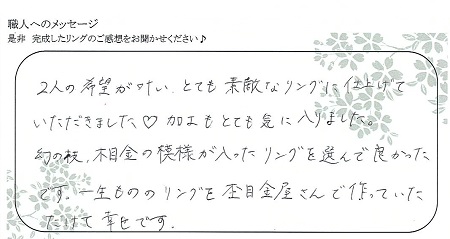 職人へのメッセージ
是非 完成したリングのご感想をお聞かせください♪
2人の希望が叶い、とても素敵なリングに仕上げて
いただきました♡ 加工もとても気に入りました。
幻の技、木目金の模様が入ったリングを選んで良かった
です。一生もののリングを杢目金屋さんで作っていた
だけて幸せです。